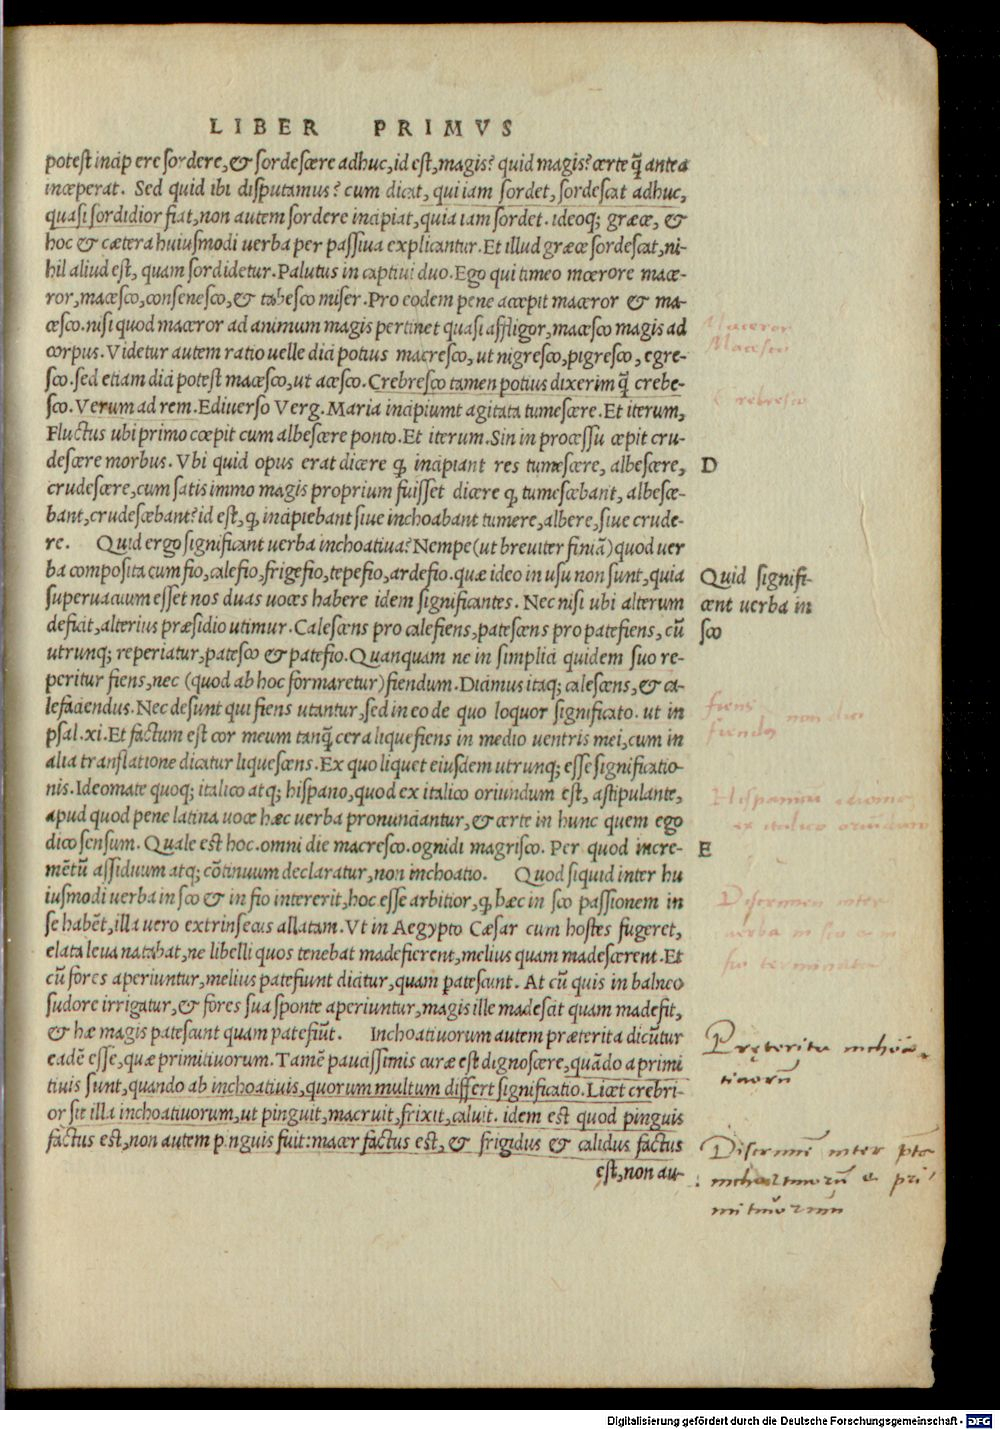 LIBER PRIMVS
potest incipere sordere, & sordescere adhuc, id est, magis? quid magis? certe q̃ antea
inceperat. Sed quid ibi disputamus? cum dicat, qui iam sordet, sordescat adhuc,
quasi sordidior fiat, non autem sordere incipiat, quia iam sordet. ideoq; græce, &
hoc & cætera huiusmodi uerba per passiua explicantur. Et illud græce sordescat, ni-
hil aliud est, quam sordidetur. Palutus in captiui duo. Ego qui timeo mœrore mace-
ror, macesco, consenesco, & tabesco miser. Pro eodem pene accepit maceror & ma-
cesco. nisi quod maceror ad animum magis pertinet quasi affligor, macesco magis ad
corpus. Videtur autem ratio uelle dici potius macresco, ut nigresco, pigresco, egre-
sco. sed etiam dici potest macesco, ut acesco. Crebresco tamen potius dixerim q̃ crebe-
sco. Verum ad rem. Ediuerso Verg. Maria incipiumt agitata tumescere. Et iterum,
Fluctus ubi primo cœpit cum albescere ponto. Et iterum. Sin in processu cepit cru-
descere morbus. Vbi quid opus erat dicere q, incipiant res tumescere, albescere,
crudescere, cum satis immo magis proprium fuisset dicere q, tumescebant, albesce-
bant, crudescebant? id est, q, incipiebant siue inchoabant tumere, albere, siue crude-
re. Quid ergo significant uerba inchoatiua? Nempe (ut breuiter finiã) quod uer
ba composita cum fio, calefio, frigefio, tepefio, ardefio. quæ ideo in usu non sunt, quia
superuacuum esset nos duas uoces habere idem significantes. Nec nisi ubi alterum
deficit, alterius præsidio utimur. Calescens pro calefiens, patescens pro patefiens, cũ
utrunq; reperiatur, patesco & patefio. Quanquam ne in simplici quidem suo re-
peritur fiens, nec (quod ab hoc formaretur) fiendum. Dicimus itaq; calescens, & ca-
lefaciendus. Nec desunt qui fiens utantur, sed in eo de quo loquor significato. ut in
psal. xi. Et factum est cor meum tanq̃ cera liquefiens in medio uentris mei, cum in
alia translatione dicatur liquescens. Ex quo liquet eiusdem utrunq; esse significatio-
nis. Ideomate quoq; italico atq; hispano, quod ex italico oriundum est, astipulante,
apud quod pene latina uoce hæc uerba pronunciantur, & certe in hunc quem ego
dico sensum. Quale est hoc. omni die macresco. ognidi magrisco. Per quod incre-
mẽtũ assiduum atq; cõtinuum declaratur, non inchoatio. Quod siquid inter hu
iusmodi uerba in sco & in fio intererit, hoc esse arbitior, q, hæc in sco passionem in
se habẽt, illa uero extrinsecus allatam. Vt in Aegypto Cæsar cum hostes fugeret,
elata leua natabat, ne libelli quos tenebat madefierent, melius quam madescerent. Et
cũ fores aperiuntur, melius patefiunt dicitur, quam patescunt. At cũ quis in balneo
sudore irrigatur, & fores sua sponte aperiuntur, magis ille madescit quam madefit,
& hæ magis patescunt quam patefiũt. Inchoatiuorum autem præterita dicũtur
eadẽ esse, quæ primitiuorum. Tamẽ paucissimis curæ est dignoscere, quãdo a primi
tiuis sunt, quando ab inchoatiuis, quorum multum differt significatio. Licet crebri-
or sit illa inchoatiuorum, ut pinguit, macruit, frixit, caluit. idem est quod pinguis
factus est, non autem pinguis fuit: macer factus est, & frigidus & calidus factus
est, non au-
Maceror
Macesco
Crebresco
D
Quid signifi-
cent uerba in
sco
fiens, non dici
fiendus
Hispanum idioma
ex italico oriundum
E
Discrimen inter
uerba in sco & in
fio terminata
Pręterita inchoa-
tiuorũ
Discrimẽ inter pta
inchoatiuorũ & pri
mitiuorum
Digitalisierung gefördert durch die Deutsche Forschungsgemeinschaft - DFG